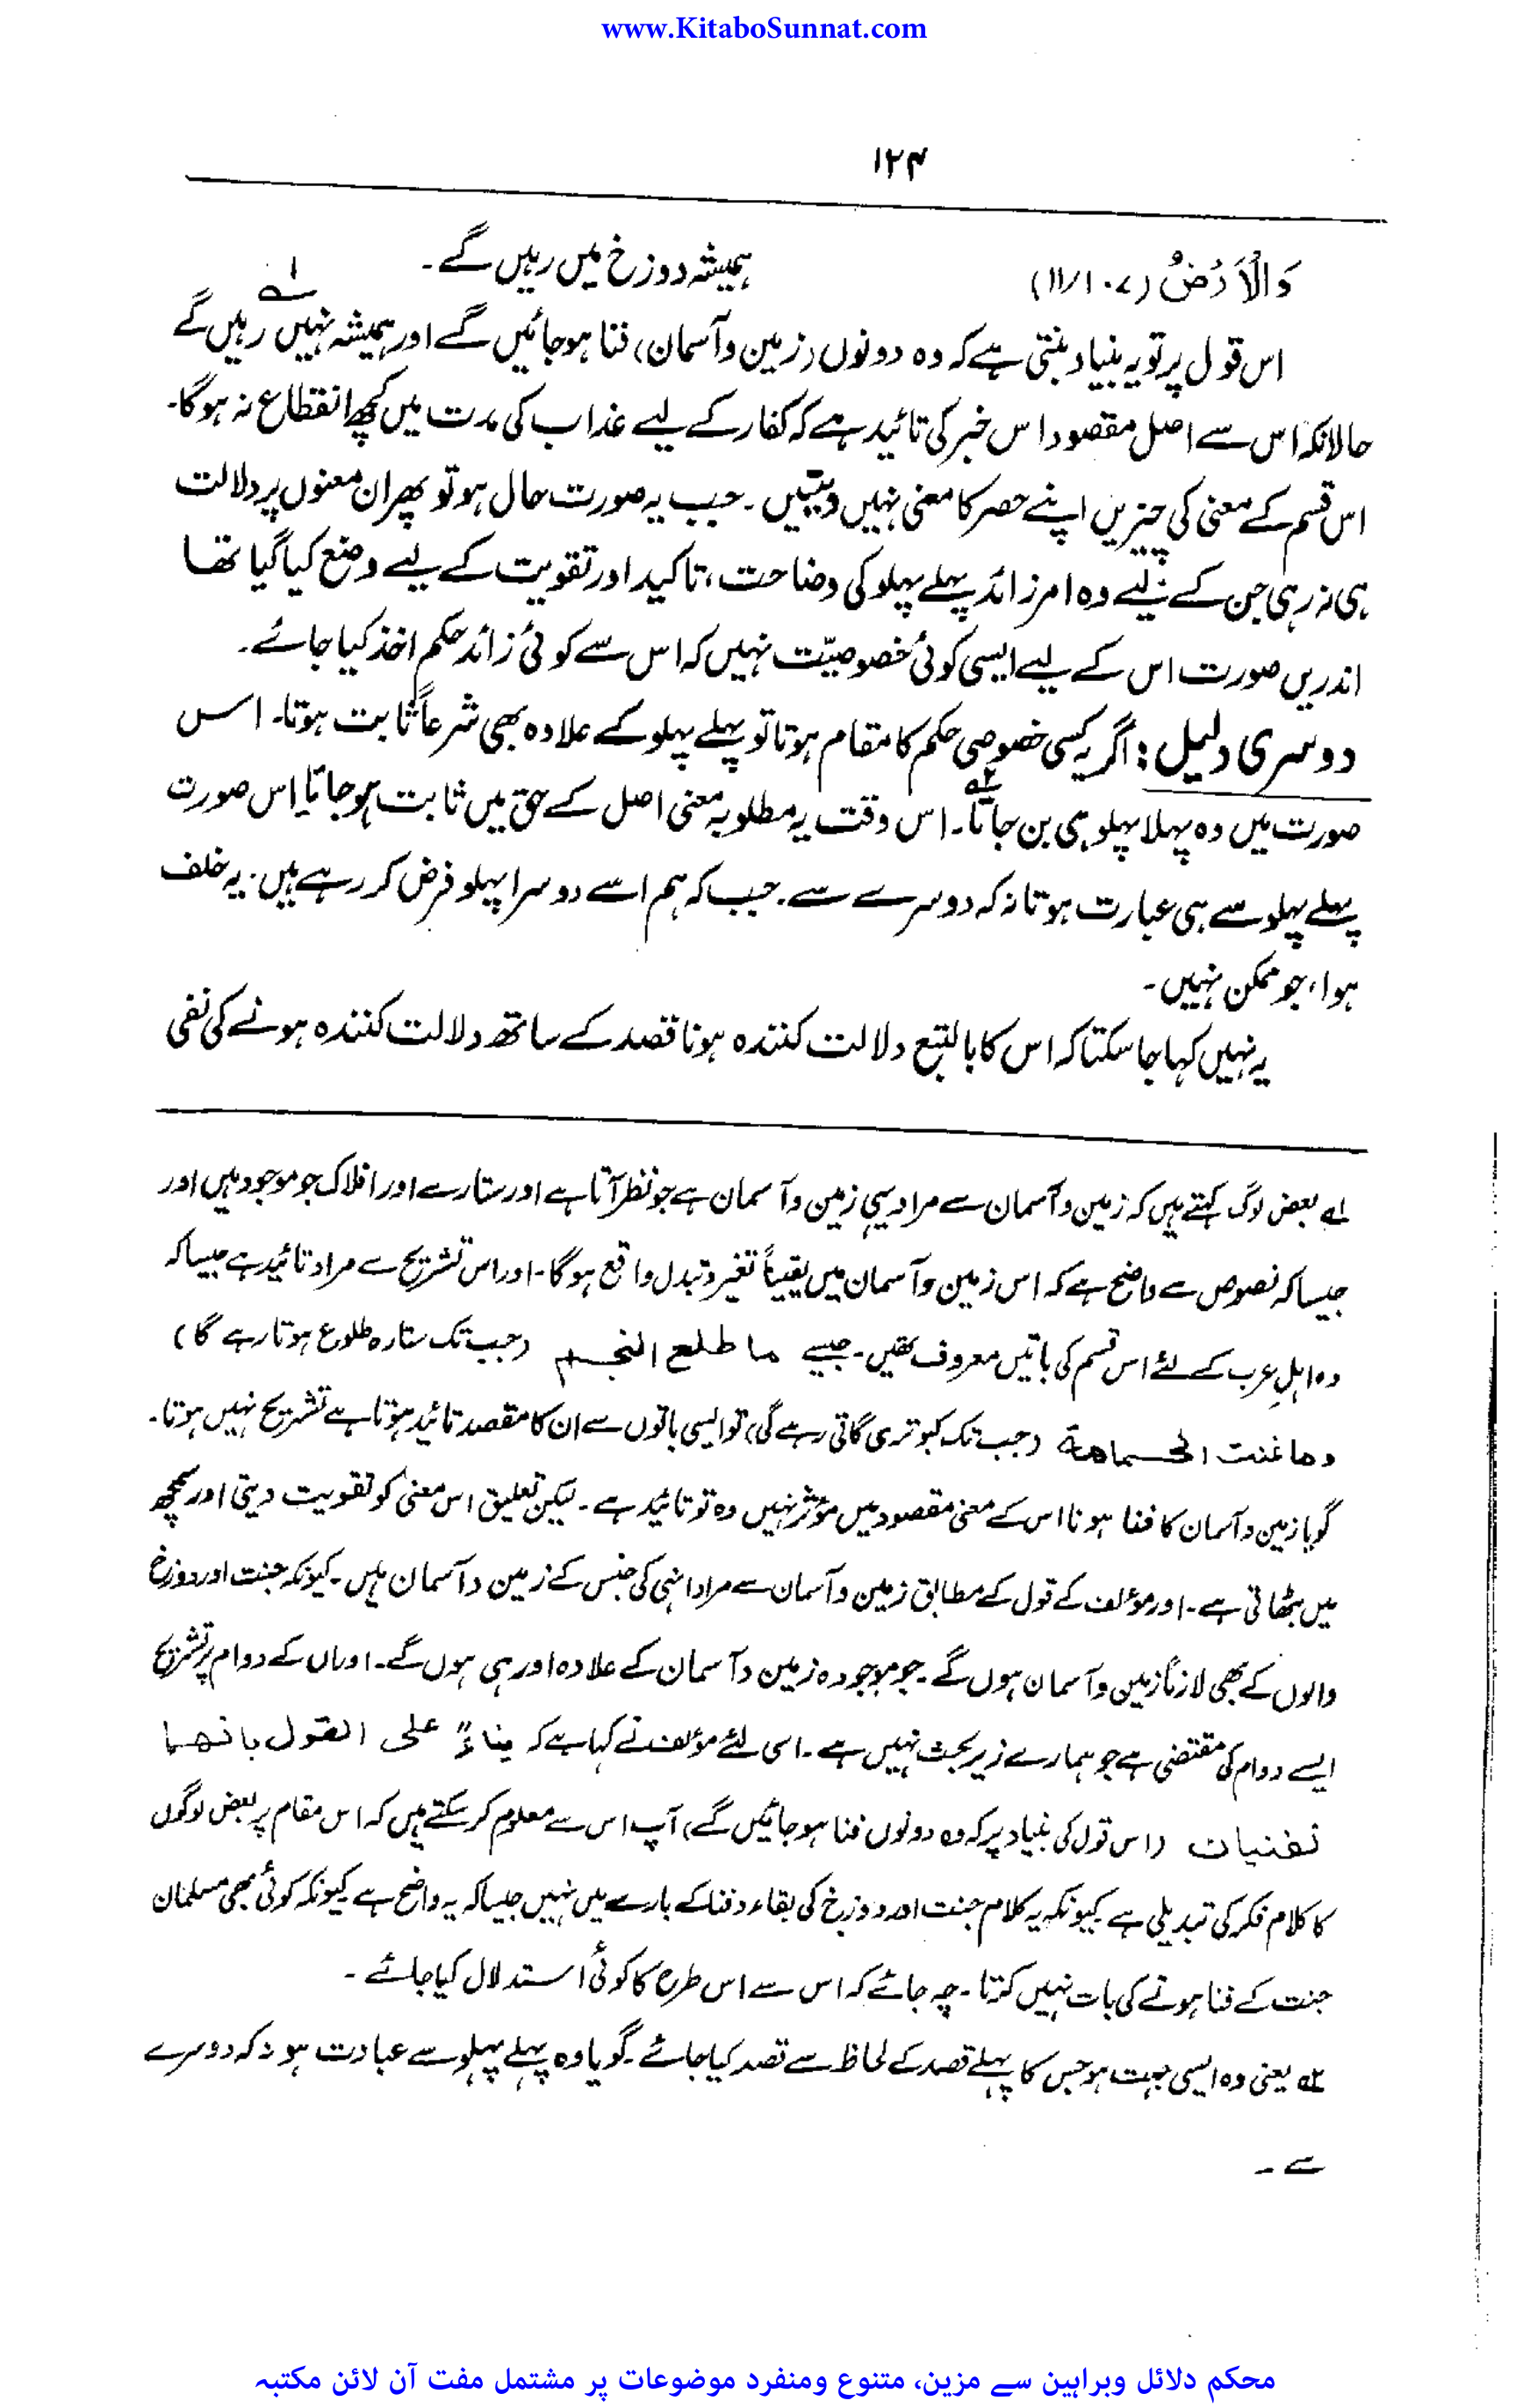 www.KitaboSunnat.com
۱۲۴
وَالْاَرْضُ (۱۱/۱۰۷) ہمیشہ دوزخ میں رہیں گے۔
اس قول پر تو یہ بنیاد بنتی ہے کہ وہ دونوں (زمین وآسمان) فنا ہو جائیں گے اور ہمیشہ نہیں رہیں گے ۱ے
حالانکہ اس سے اصل مقصود اس خبر کی تائید ہے کہ کفار کے لیے عذاب کی مدت میں کچھ انقطاع نہ ہوگا۔
اس قسم کے معنی کی چیزیں اپنے حصر کا معنی نہیں دیتیں۔ جب یہ صورت حال ہو تو پھر ان معنوں پر دلالت
ہی نہ رہی جن کے لیے وہ امر زائد پہلے پہلو کی وضاحت، تاکید اور تقویت کے لیے وضع کیا گیا تھا
اندریں صورت اس کے لیے ایسی کوئی خصوصیّت نہیں کہ اس سے کوئی زائد حکم اخذ کیا جائے۔
دوسری دلیل: اگر یہ کسی خصوصی حکم کا مقام ہوتا تو پہلے پہلو کے علاوہ بھی شرعاً ثابت ہوتا۔ اس
صورت میں وہ پہلا پہلو ہی بن جاتا۲ے۔ اس وقت یہ مطلوبہ معنی اصل کے حق میں ثابت ہو جاتا یا اس صورت
پہلے پہلو سے ہی عبارت ہوتا نہ کہ دوسرے سے۔ جب کہ ہم اسے دوسرا پہلو فرض کر رہے ہیں۔ یہ خلف
ہوا، جو ممکن نہیں۔
یہ نہیں کہا جا سکتا کہ اس کا بالتبع دلالت کنندہ ہونا قصد کے ساتھ دلالت کنندہ ہونے کی نفی
۱ے بعض لوگ کہتے ہیں کہ زمین وآسمان سے مراد یہی زمین وآسمان ہے جو نظر آتا ہے اور ستارے اور افلاک جو موجود ہیں اور
جیسا کہ نصوص سے واضح ہے کہ اس زمین وآسمان میں یقیناً تغیر وتبدل واقع ہوگا۔ اور اس تشریح سے مراد تائید ہے جیسا کہ
وہ اہلِ عرب کے لئے اس قسم کی باتیں معروف تھیں۔ جیسے ما طلع النجم (جب تک ستارہ طلوع ہوتا رہے گا)
وما غنت الحمامة (جب تک کبوتری گاتی رہے گی) تو ایسی باتوں سے ان کا مقصد تائید ہوتا ہے تشریح نہیں ہوتا۔
گویا زمین وآسمان کا فنا ہونا اس کے معنی مقصود میں مؤثر نہیں وہ تو تائید ہے۔ لیکن تعلیق اس معنی کو تقویت دیتی اور سمجھ
میں بٹھاتی ہے۔ اور مؤلف کے قول کے مطابق زمین وآسمان سے مراد انہی کی جنس کے زمین وآسمان ہیں۔ کیونکہ جنت اور دوزخ
والوں کے بھی لازماً زمین وآسمان ہوں گے۔ جو موجودہ زمین وآسمان کے علاوہ اور ہی ہوں گے۔ اور ان کے دوام پر تشریح
ایسے دوام کی مقتضی ہے جو ہمارے زیر بحث نہیں ہے۔ اسی لئے مؤلف نے کہا ہے کہ بناءً علی القول بانھما
تفنیان (اس قول کی بنیاد پر کہ وہ دونوں فنا ہو جائیں گے) آپ اس سے معلوم کر سکتے ہیں کہ اس مقام پر بعض لوگوں
کا کلام فکر کی تبدیلی ہے کیونکہ یہ کلام جنت اور دوزخ کی بقاء وفنا کے بارے میں نہیں جیسا کہ یہ واضح ہے کیونکہ کوئی بھی مسلمان
جنت کے فنا ہونے کی بات نہیں کرتا۔ چہ جائے کہ اس سے اس طرح کا کوئی استدلال کیا جائے۔
۲ے یعنی وہ ایسی جہت ہو جس کا پہلے قصد کے لحاظ سے قصد کیا جائے۔ گویا وہ پہلے پہلو سے عبادت ہو نہ کہ دوسرے
سے۔
محکم دلائل وبراہین سے مزین، متنوع ومنفرد موضوعات پر مشتمل مفت آن لائن مکتبہ